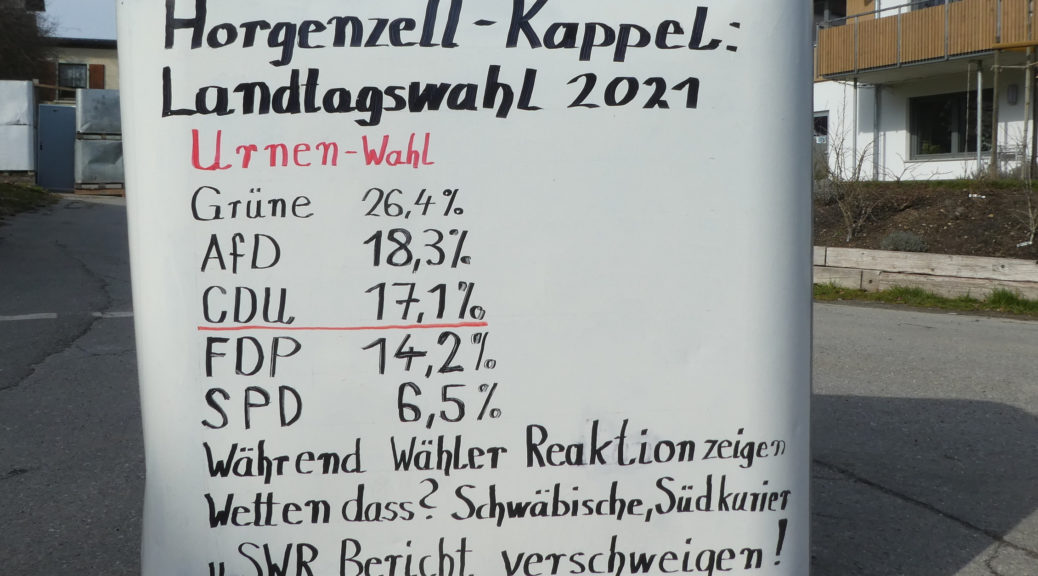 Horgenzell-Kappel:
Landtagswahl 2021
Urnen-Wahl
Grüne 26,4%
AfD 18,3%
CDU 17,1%
FDP 14,2%
SPD 6,5%
Während Wähler Reaktion zeigen
Wetten dass? Schwäbische, Südkurier
u. SWR Bericht verschweigen!